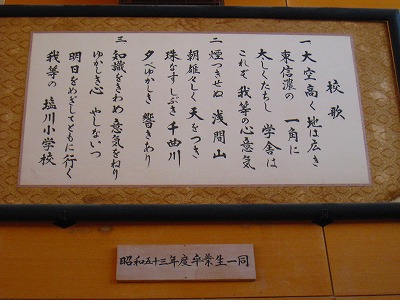 校歌
一 大空高く地は広き
東信濃の一角に
大しくたちし学舎は
これぞ我等の心意気
二 煙つきせぬ浅間山
朝雄々しく天をつき
珠なすしぶき千曲川
夕べゆかしき響きあり
三 知識をきわめ意気をねり
ゆかしき心やしないつ
明日をめざしてともに行く
我等の塩川小学校
昭和五十三年度卒業生一同